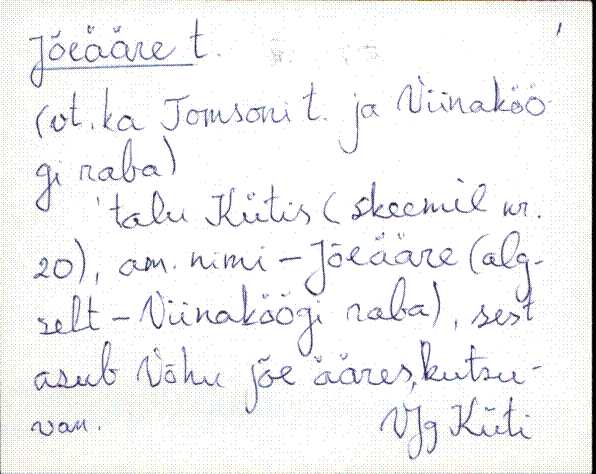 Jõeääre t.
(vt. ka Tomsoni t. ja Viinaköö-
gi raba)
talu Kütis (skeemil nr.
20), am. nimi - Jõeääre (alg-
selt - Viinaköögi raba), sest
asub Võhu jõe ääres, kutsu-
van.
VJg Küti